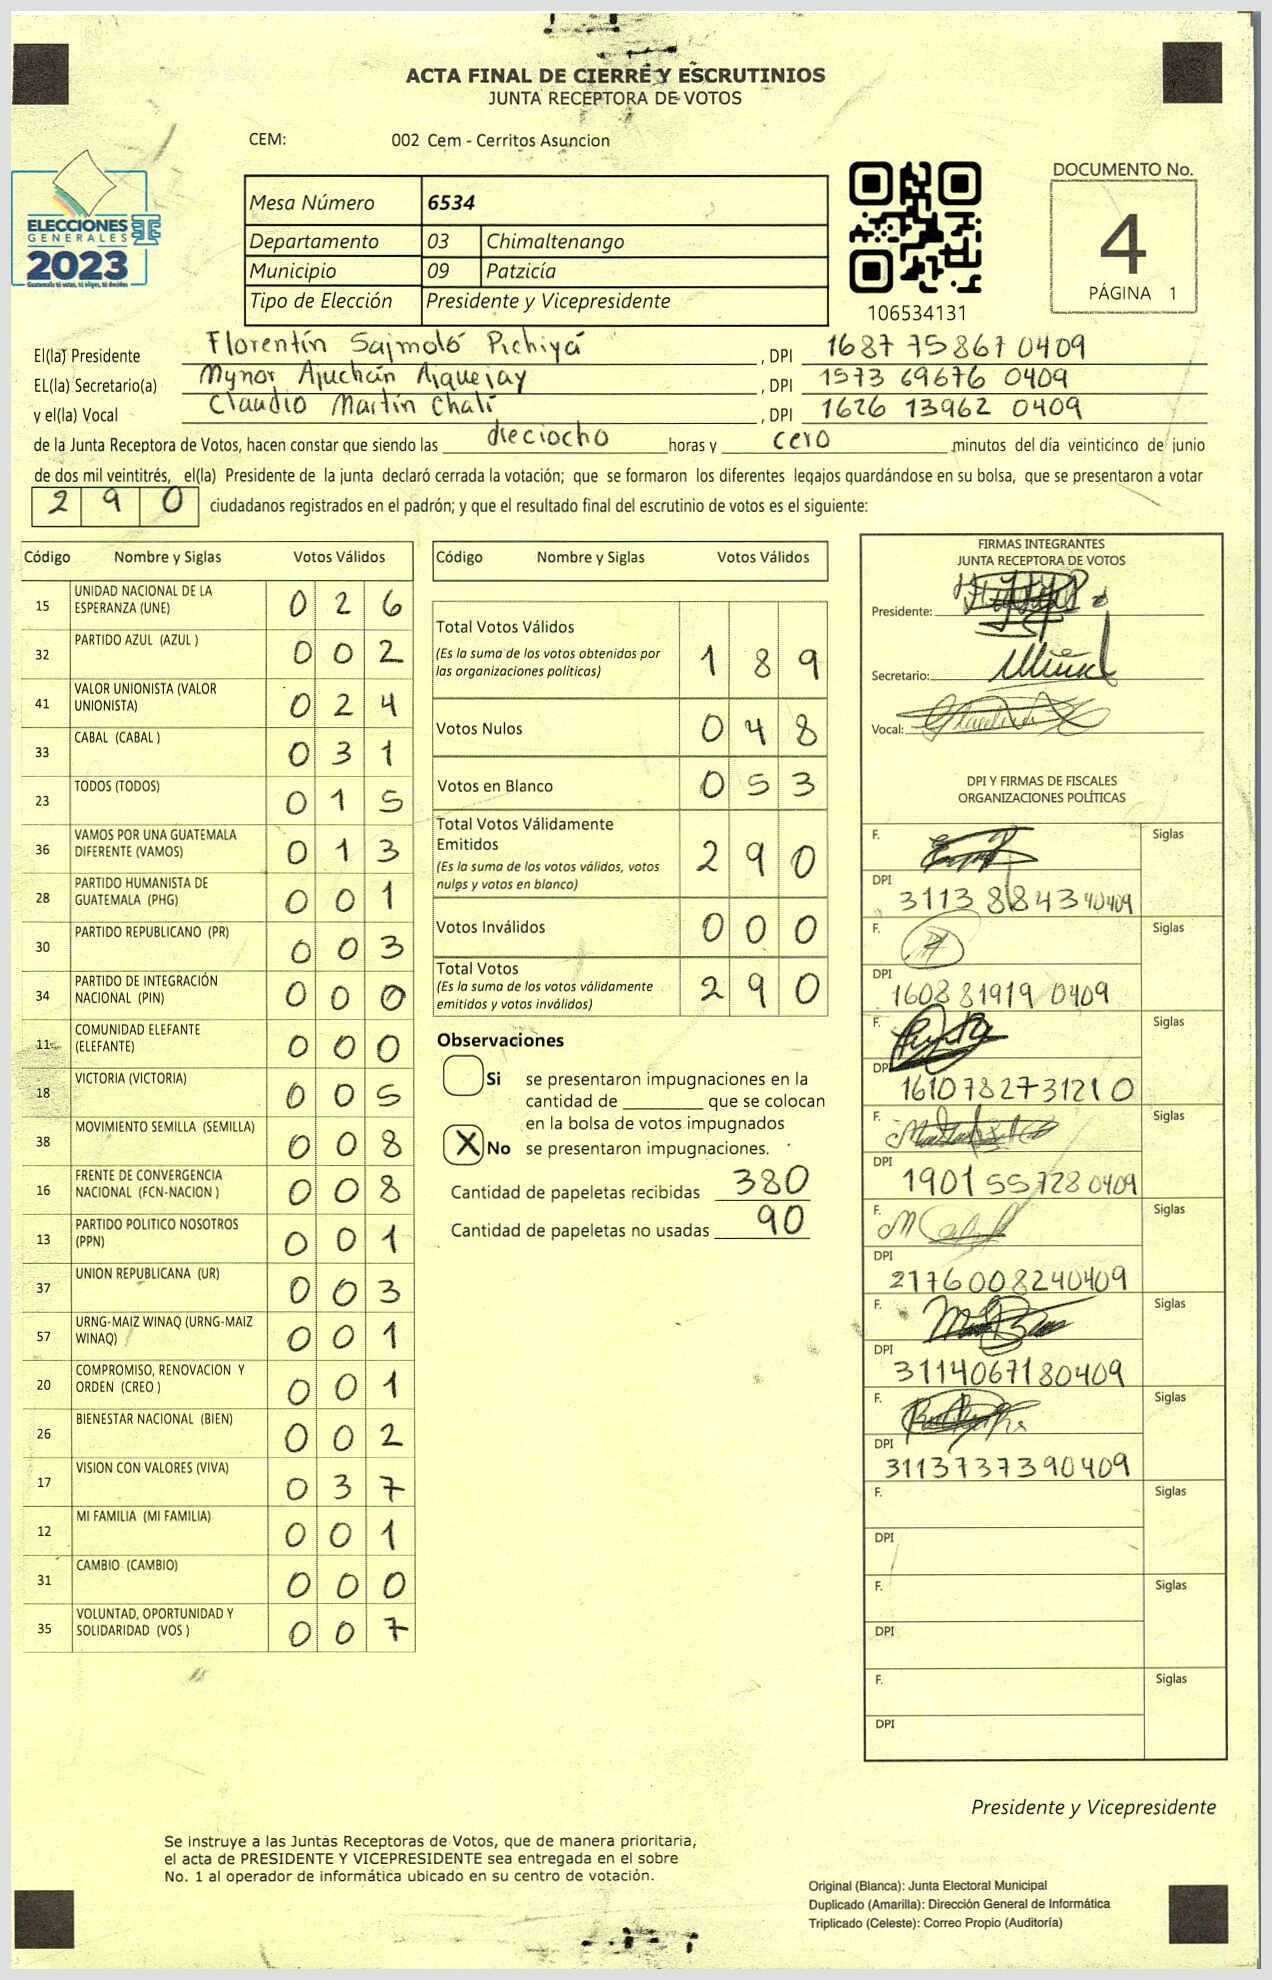 ACTA FINAL DE CIERRE Y ESCRUTINIOS
JUNTA RECEPTORA DE VOTOS
CEM: 002 Cem - Cerritos Asuncion
ELECCIONES
GENERALES
2023
Guatemala tú votas, tú eliges, tú decides
Mesa Número 6534
Departamento 03 Chimaltenango
Municipio 09 Patzicía
Tipo de Elección Presidente y Vicepresidente
106534131
DOCUMENTO No.
4
PÁGINA 1
El(la) Presidente Florentín Sajmoló Pichiyá, DPI 1687 75867 0409
EL(la) Secretario(a) Mynor Ajuchán Aiquejay, DPI 1573 69676 0409
y el(la) Vocal Claudio Martín Chalí, DPI 1626 13962 0409
de la Junta Receptora de Votos, hacen constar que siendo las dieciocho horas y cero minutos del día veinticinco de junio
de dos mil veintitrés, el(la) Presidente de la junta declaró cerrada la votación; que se formaron los diferentes legajos guardándose en su bolsa, que se presentaron a votar
290 ciudadanos registrados en el padrón; y que el resultado final del escrutinio de votos es el siguiente:
Código Nombre y Siglas Votos Válidos
15 UNIDAD NACIONAL DE LA ESPERANZA (UNE) 026
32 PARTIDO AZUL (AZUL ) 002
41 VALOR UNIONISTA (VALOR UNIONISTA) 024
33 CABAL (CABAL ) 031
23 TODOS (TODOS) 015
36 VAMOS POR UNA GUATEMALA DIFERENTE (VAMOS) 013
28 PARTIDO HUMANISTA DE GUATEMALA (PHG) 001
30 PARTIDO REPUBLICANO (PR) 003
34 PARTIDO DE INTEGRACIÓN NACIONAL (PIN) 000
11 COMUNIDAD ELEFANTE (ELEFANTE) 000
18 VICTORIA (VICTORIA) 005
38 MOVIMIENTO SEMILLA (SEMILLA) 008
16 FRENTE DE CONVERGENCIA NACIONAL (FCN-NACION ) 008
13 PARTIDO POLITICO NOSOTROS (PPN) 001
37 UNION REPUBLICANA (UR) 003
57 URNG-MAIZ WINAQ (URNG-MAIZ WINAQ) 001
20 COMPROMISO, RENOVACION Y ORDEN (CREO ) 001
26 BIENESTAR NACIONAL (BIEN) 002
17 VISION CON VALORES (VIVA) 037
12 MI FAMILIA (MI FAMILIA) 001
31 CAMBIO (CAMBIO) 000
35 VOLUNTAD, OPORTUNIDAD Y SOLIDARIDAD (VOS ) 007
Código Nombre y Siglas Votos Válidos
Total Votos Válidos 189
(Es la suma de los votos obtenidos por
las organizaciones políticas)
Votos Nulos 048
Votos en Blanco 053
Total Votos Válidamente
Emitidos 290
(Es la suma de los votos válidos, votos
nulos y votos en blanco)
Votos Inválidos 000
Total Votos 290
(Es la suma de los votos válidamente
emitidos y votos inválidos)
Observaciones
Si se presentaron impugnaciones en la
cantidad de ________ que se colocan
en la bolsa de votos impugnados
X No se presentaron impugnaciones.
Cantidad de papeletas recibidas 380
Cantidad de papeletas no usadas 90
FIRMAS INTEGRANTES
JUNTA RECEPTORA DE VOTOS
Presidente:
Secretario:
Vocal:
DPI Y FIRMAS DE FISCALES
ORGANIZACIONES POLÍTICAS
F. Siglas
DPI 3113 88434 0409
F. Siglas
DPI 1608 81919 0409
F. Siglas
DPI 1610782731210
F. Siglas
DPI 1901 55728 0409
F. Siglas
DPI 2176008240409
F. Siglas
DPI 3114067180409
F. Siglas
DPI 3113737390409
F. Siglas
DPI
F. Siglas
DPI
F. Siglas
DPI
Presidente y Vicepresidente
Se instruye a las Juntas Receptoras de Votos, que de manera prioritaria,
el acta de PRESIDENTE Y VICEPRESIDENTE sea entregada en el sobre
No. 1 al operador de informática ubicado en su centro de votación.
Original (Blanca): Junta Electoral Municipal
Duplicado (Amarilla): Dirección General de Informática
Triplicado (Celeste): Correo Propio (Auditoría)